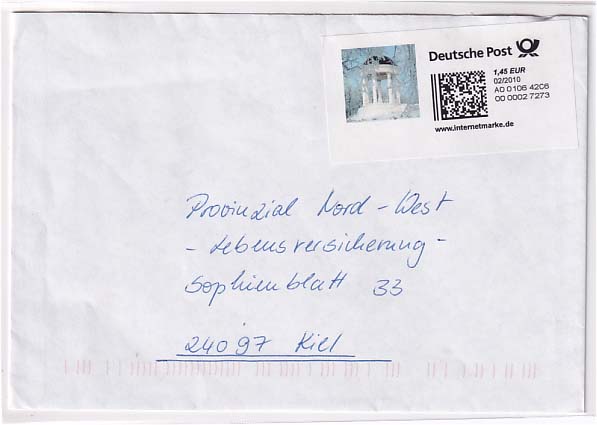 Deutsche Post
1,45 EUR
02/2010
A0 0106 42C6
00 0002 7273
www.internetmarke.de
Provinzial Nord-West
- Lebensversicherung -
Sophienblatt 33
24097 Kiel